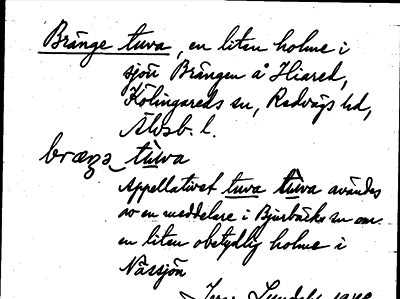 Bränge tuva, en liten holme i
sjön Brängen å Hiared,
Kölingareds sn, Redvägs hd,
Älvsb. l.
tùva
Appellativet tuva tùva användes
av en meddelare i Bjurbäcks sn om
en liten obetydlig holme i
Nässjön